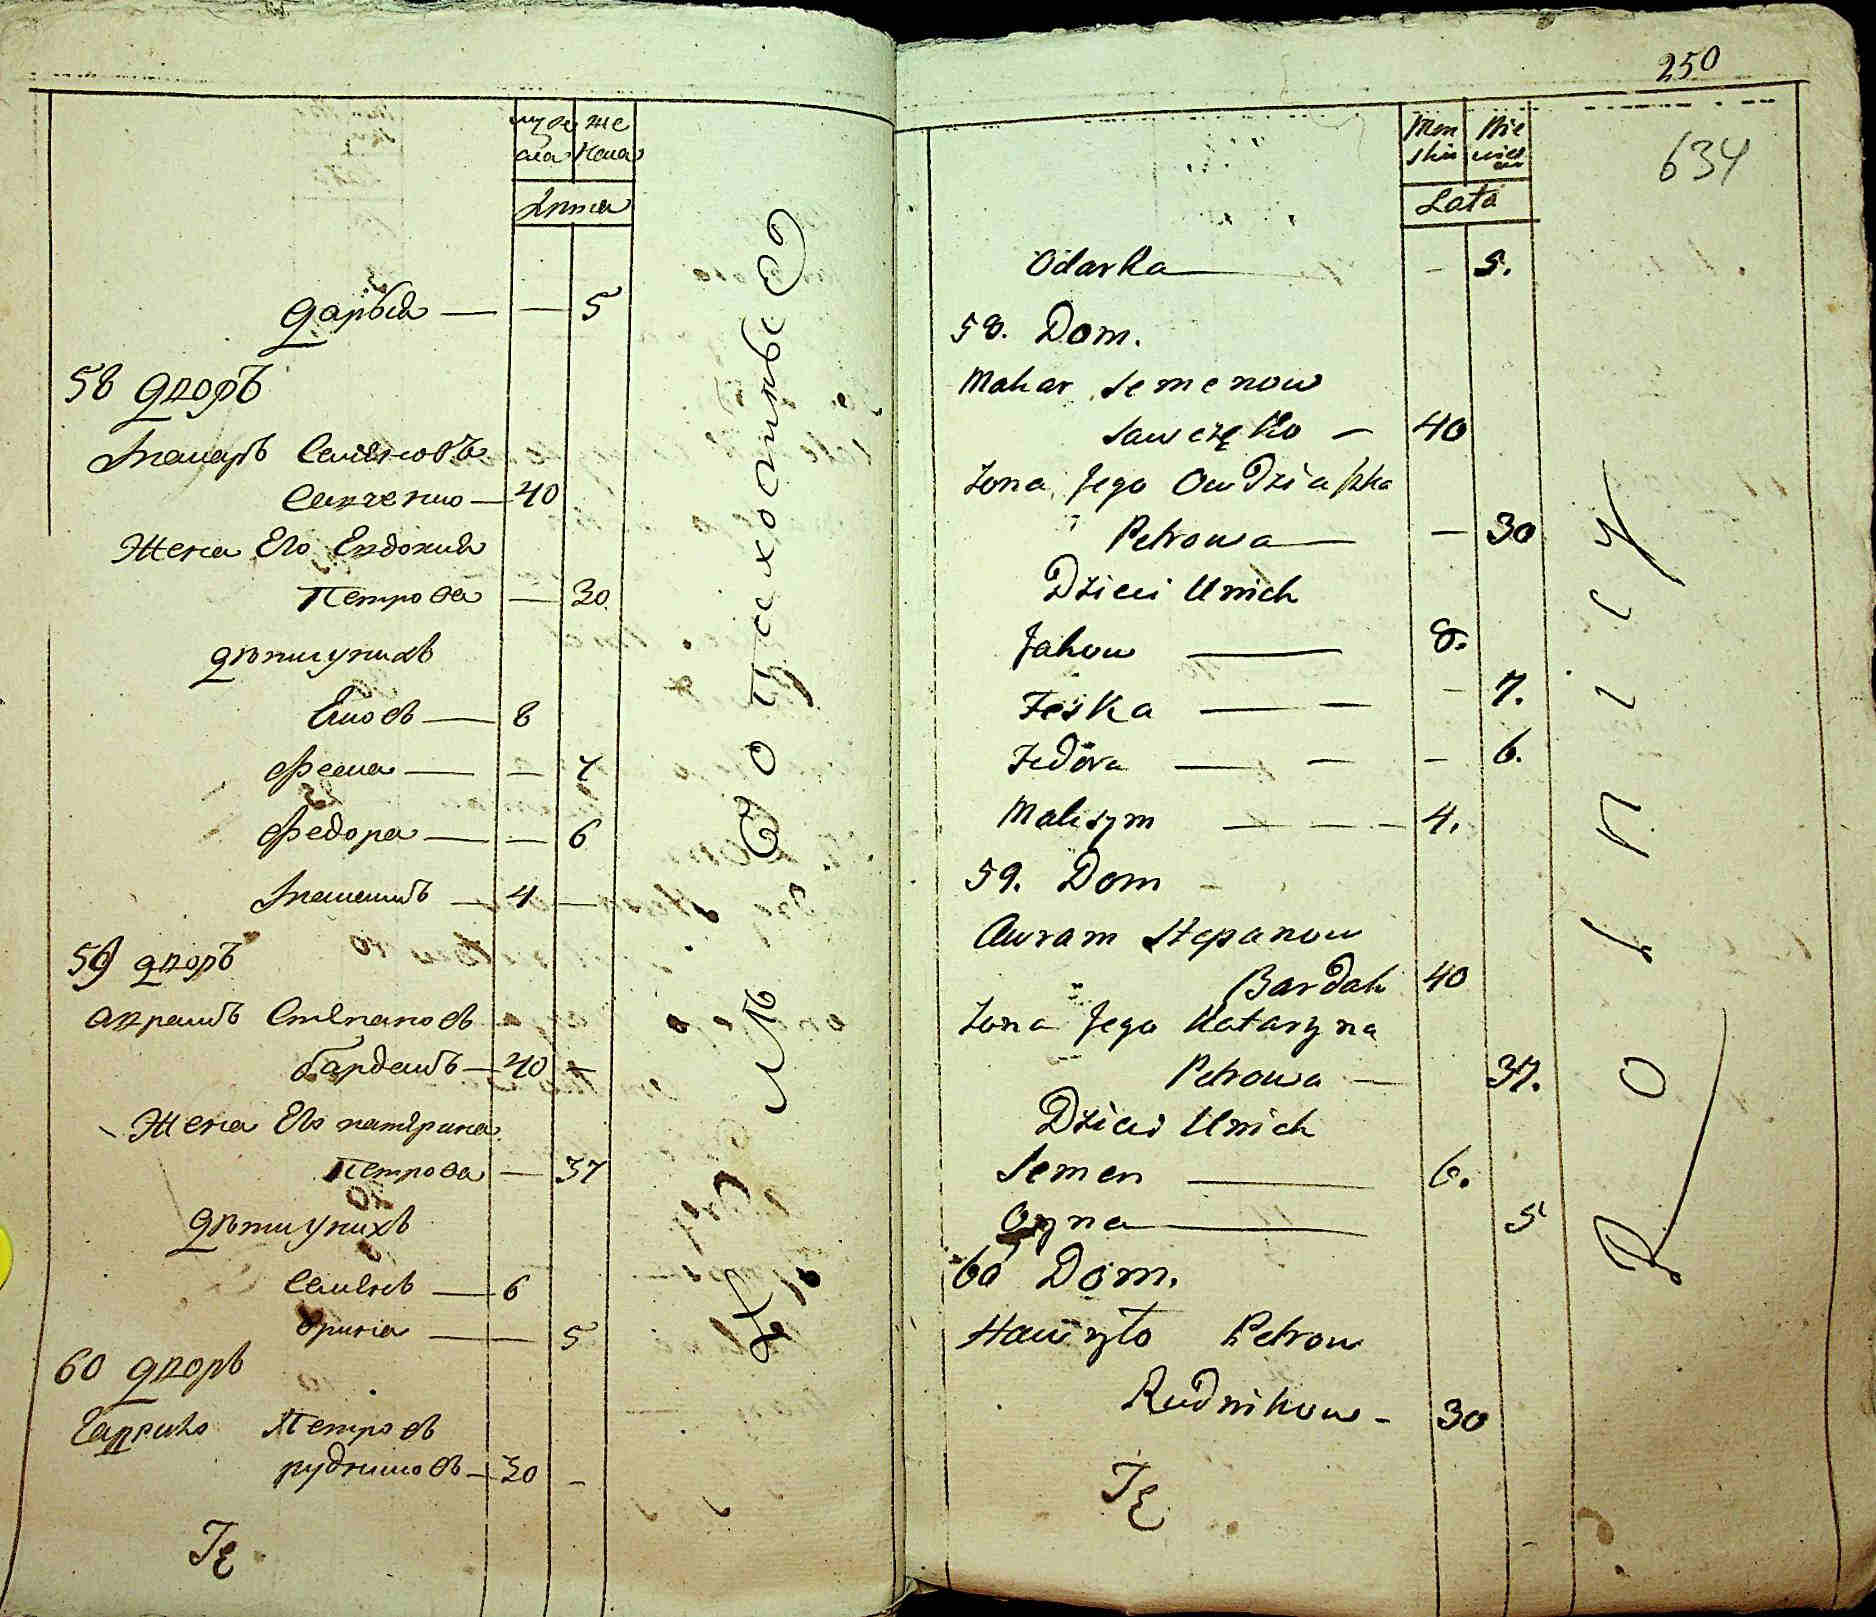 муже же
ска нска
Лѣта
Дарья — — 5
58 дворъ
Макаръ Семѣновъ
Савченко — 40
Жена Его Евдокия
Петрова — 30
дѣти у нихъ
Яковъ — 8
Феска — — 7
Федора — — 6
Максимъ — 4 —
59 дворъ
Аврамъ Степановъ
бардакъ — 40 —
Жена Его катерина
Петрова — 37
дѣти у нихъ
Семенъ — 6
Орина — 5
60 дворъ
Гаврило Петровъ
рудниковъ — 30 —
Тę
250
634
Men Nie
skie wies
Lata
Odarka — – 5.
58. Dom.
Makar Semenow
Sawczęko – 40
Żona Jego Owdziaszka
Petrowa — – 30
Dzieci U nich
Jakow — 8.
Feśka — – – 7.
Fedora — – – 6.
Maksym — – – 4.
59. Dom
Awram Stepanow
Bardak 40
Żona Jego Katarzyna
Petrowa — 37.
Dzieci U nich
Semen — 6.
Oryna — 5
60 Dom.
Hawryło Petrow
Rudnikow – 30
Tę